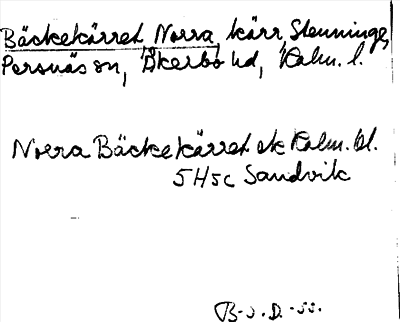 Bäckekärret Norra, kärr, Stenninge,
Persnäs sn, Åkerbo hd, Kalm. l.
Norra Bäckekärret ek Kalm. bl.
5H5c Sandvik
B-J. D. -55.